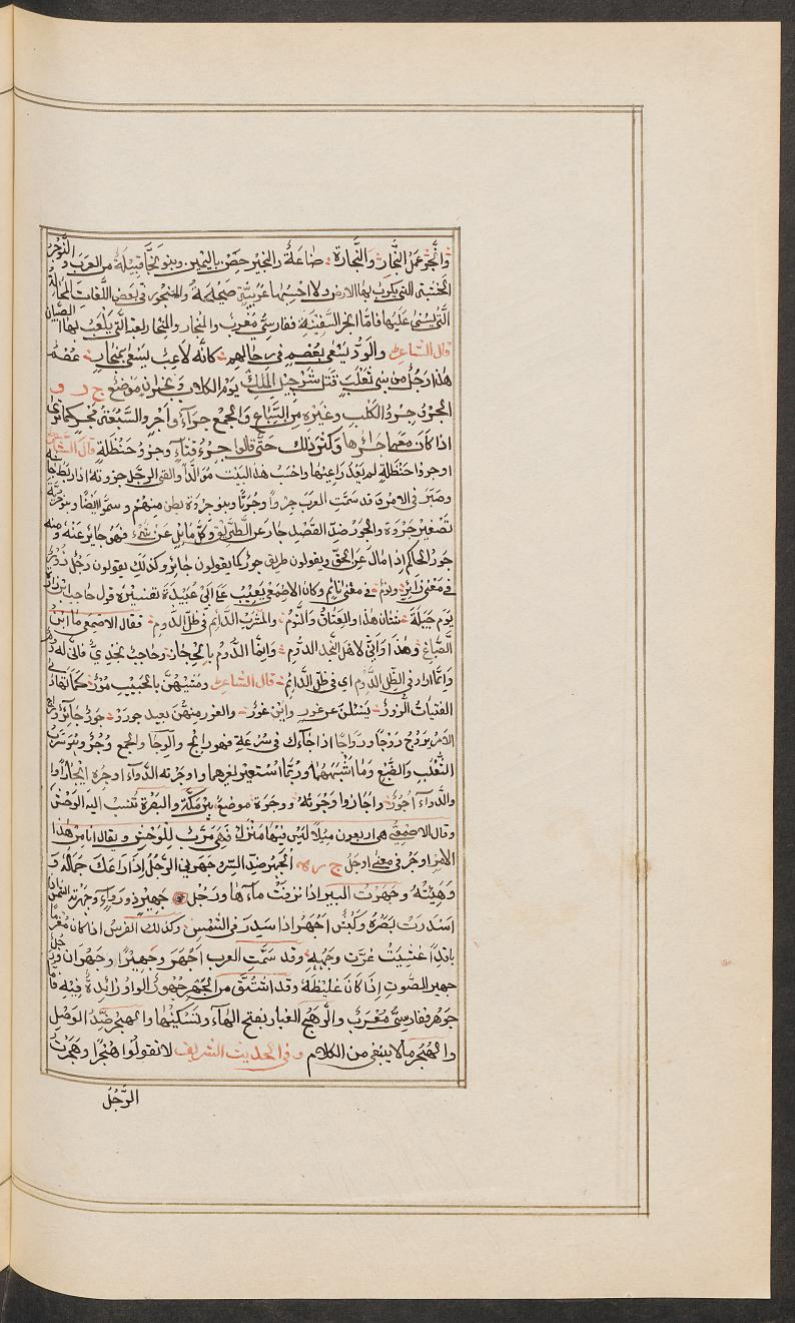 والنجر عمل النجار والنجارة صناعة والنجير حصن باليمن وبنو النجار قبيلة من العرب و النوجر
الخشبة التي تكرب بها الارض ولا احسبها عربية صحيحة والمنجور في بعض اللغات المحالة
التي يسنى عليها فاما انجر السفينة ففارسي معرب والمنجار لعبة التي يلعب بها الصبيان
قال الشاعر والورد يسعى بعصم في رحالهم كأنه لاعب يسعى بمنجار عصم
هذا رجل من بني تغلب قتل شرحبيل الملك يوم الكلاب ونجران موضع ج ر و
الجرو جرو الكلب وغيره من السباع والجمع جراء واجر والسبعة مجر كما ترى
اذا كان معها جراؤها وكثر ذلك حتى قالوا جرو قثاء وجرو حنظلة قال الشاعر
او جرو حنظلة لم يعد راعيها واحسب هذا البيت مولدا والقى الرجل جروته اذا ربط جأشه
وصبر في الامر وقد سمت العرب جروا وجرية وبنو جروة بطن منهم وسموا ايضا وبنو جرية
تصغير جروة والجور ضد القصد جار عن الطريق وكل مائل عن شيء فهو جائر عنه ومنه
جور الحاكم اذا مال عن الحق ويقولون طريق جور كما يقولون جائر وكذلك يقولون رجل زور
في معنى زائر ونوم في معنى نائم وكان الاصمعي يعيب على ابي عبيدة تفسيره قول حاجب ابن زرارة
يوم جبلة شتان هذا والعناق والنوم والمشرب الدائم في ظل الدوم فقال الاصمعي ما ابن
الصباغ وهذا واني لاهل نجد الدوم وانما الدوم بالحجاز وحاجب نجدي فانى له دوم
وانما اراد في الظل الدوم اي في ظل الدائم قال الشاعر ومشيهن بالحبيب مور كما تهادى
الفتيات الزور يسئلن عن غور واين غور والغور منهن بعيد جور جور جائر وراج
الامر يروج روجا ورواجا اذا جاءك في سرعة فهو رائج والوجار والجمع وجر وهو سرب
الثعلب والضبع وما اشبههما وربما استعير لغيرها واوجرته الدواء اوجره ايجارا
والدواء وجور واجاروا وجرته ووجرة موضع بين مكة والبصرة تنسب اليه الوحش
وقال الاصمعي هم اربعون ميلا ليس فيها منزل فهي مرب للوحش ويقال انا من هذا
الامر اوجر في معنى اوجل ج ر ه الجهر ضد السر وجهرني الرجل اذا راعك جماله و
وهيئته وجهرت البير اذا نزفت ماءها ورجل جهير ذو رواء وجهرته الشمس اذا
اسدرت بصره وكبش اجهر اذا سدر في الشمس وكذلك الفرس اذا كان مغربا
باقدا غشيت غرت وجهه وقد سمت العرب اجهر وجهيرا وجهران ورجل
جهير الصوت اذا كان غليظه وقد اشتق من الجهر جهور الواو زائدة فيه فاما
جوهر ففارسي معرب والرهج الغبار بفتح الهاء وتسكينها والهجر ضد الوصل
والهجر ما لا ينبغي من الكلام وفي الحديث الشريف لا تقولوا هجرا وهجرت
الرجل